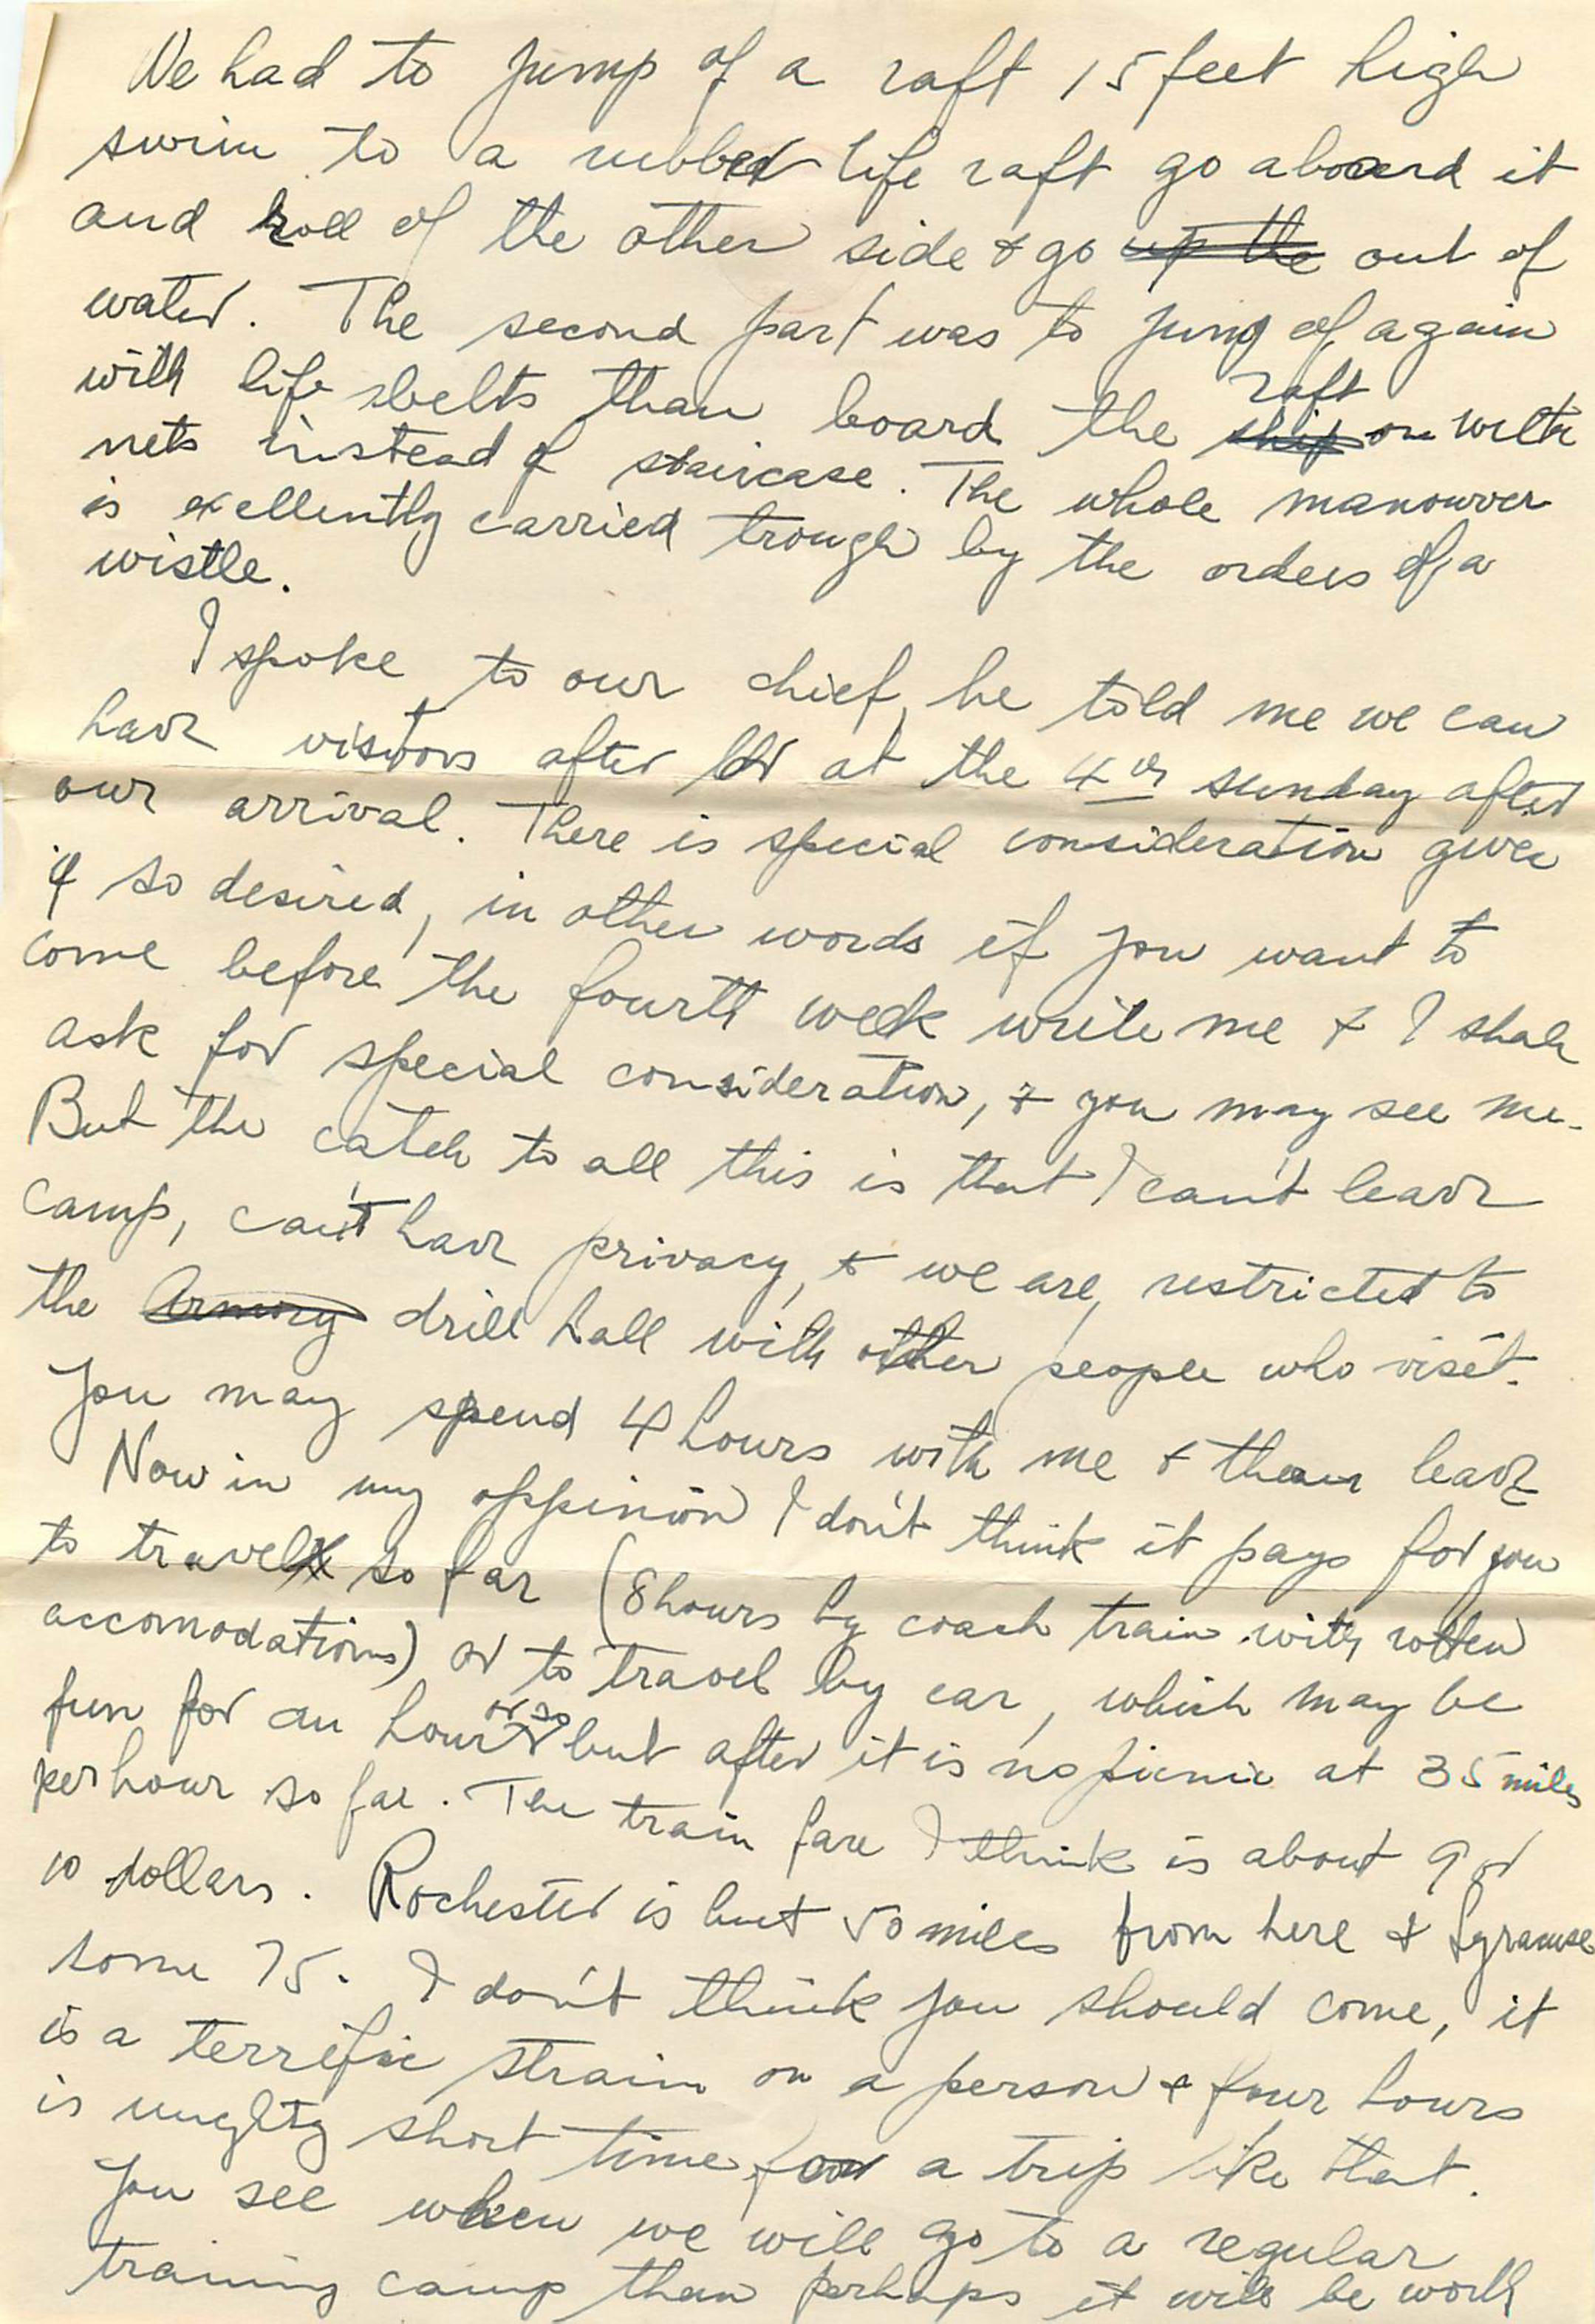 We had to jump of a raft 15 feet high
swim to a rubber life raft go aboard it
and roll of the other side & go up the out of
water. The second part was to jump of again
with life belts than board the ship raft on with
nets instead of staircase. The whole manouver
is exellently carried trough by the orders of a
wistle.
I spoke to our chief, he told me we can
have visitors after or at the 4th sunday after
our arrival. There is special consideration given
if so desired, in other words if you want to
come before the fourth week write me & I shall
ask for special consideration, & you may see me.
But the catch to all this is that I can't leave
camp, can't have privacy, & we are, restricted to
the Armory drill hall with other people who visit.
You may spend 4 hours with me & than leave
Now in my oppinion I don't think it pays for you
to travel so far (8 hours by coach train with rotten
accomodations) or to travel by car, which may be
fun for an hour or so but after it is no picnic at 35 miles
per hour so far. The train fare I think is about 9 or
10 dollars. Rochester is but 50 miles from here & Syracuse
some 75. I don't think you should come, it
is a terrific strain on a person & four hours
is mighty short time for a trip like that.
You see when we will go to a regular
training camp than perhaps it will be worth